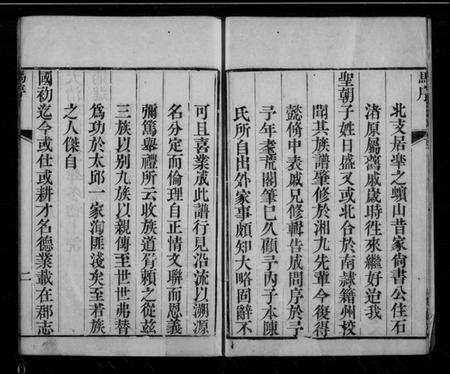 馬序
北支居舉之頭山昔家尙書公住石
渚原屬舊戚歲時徃來繼好迨我
聖朝子姓日盛叉或北合於南隸籍州校
聞其族譜肇修於湘九先輩今復得
懿脩中表戚兄修輯告成問序於予
予年耄荒閣筆巳久顧予內子本陳
氏所自出外家事頗知大略固辭不
可且喜業成此譜行見沿流以溯源
名分定而倫理自正情文聯而恩義
彌篤舉禮所云收族道胥賴之從茲
三族以别九族以親傳至世世弗替
爲功於太邱一家淘匪淺矣至若族
之人傑自
國初迄今或仕或耕才名德業載在郡志
馬序
二